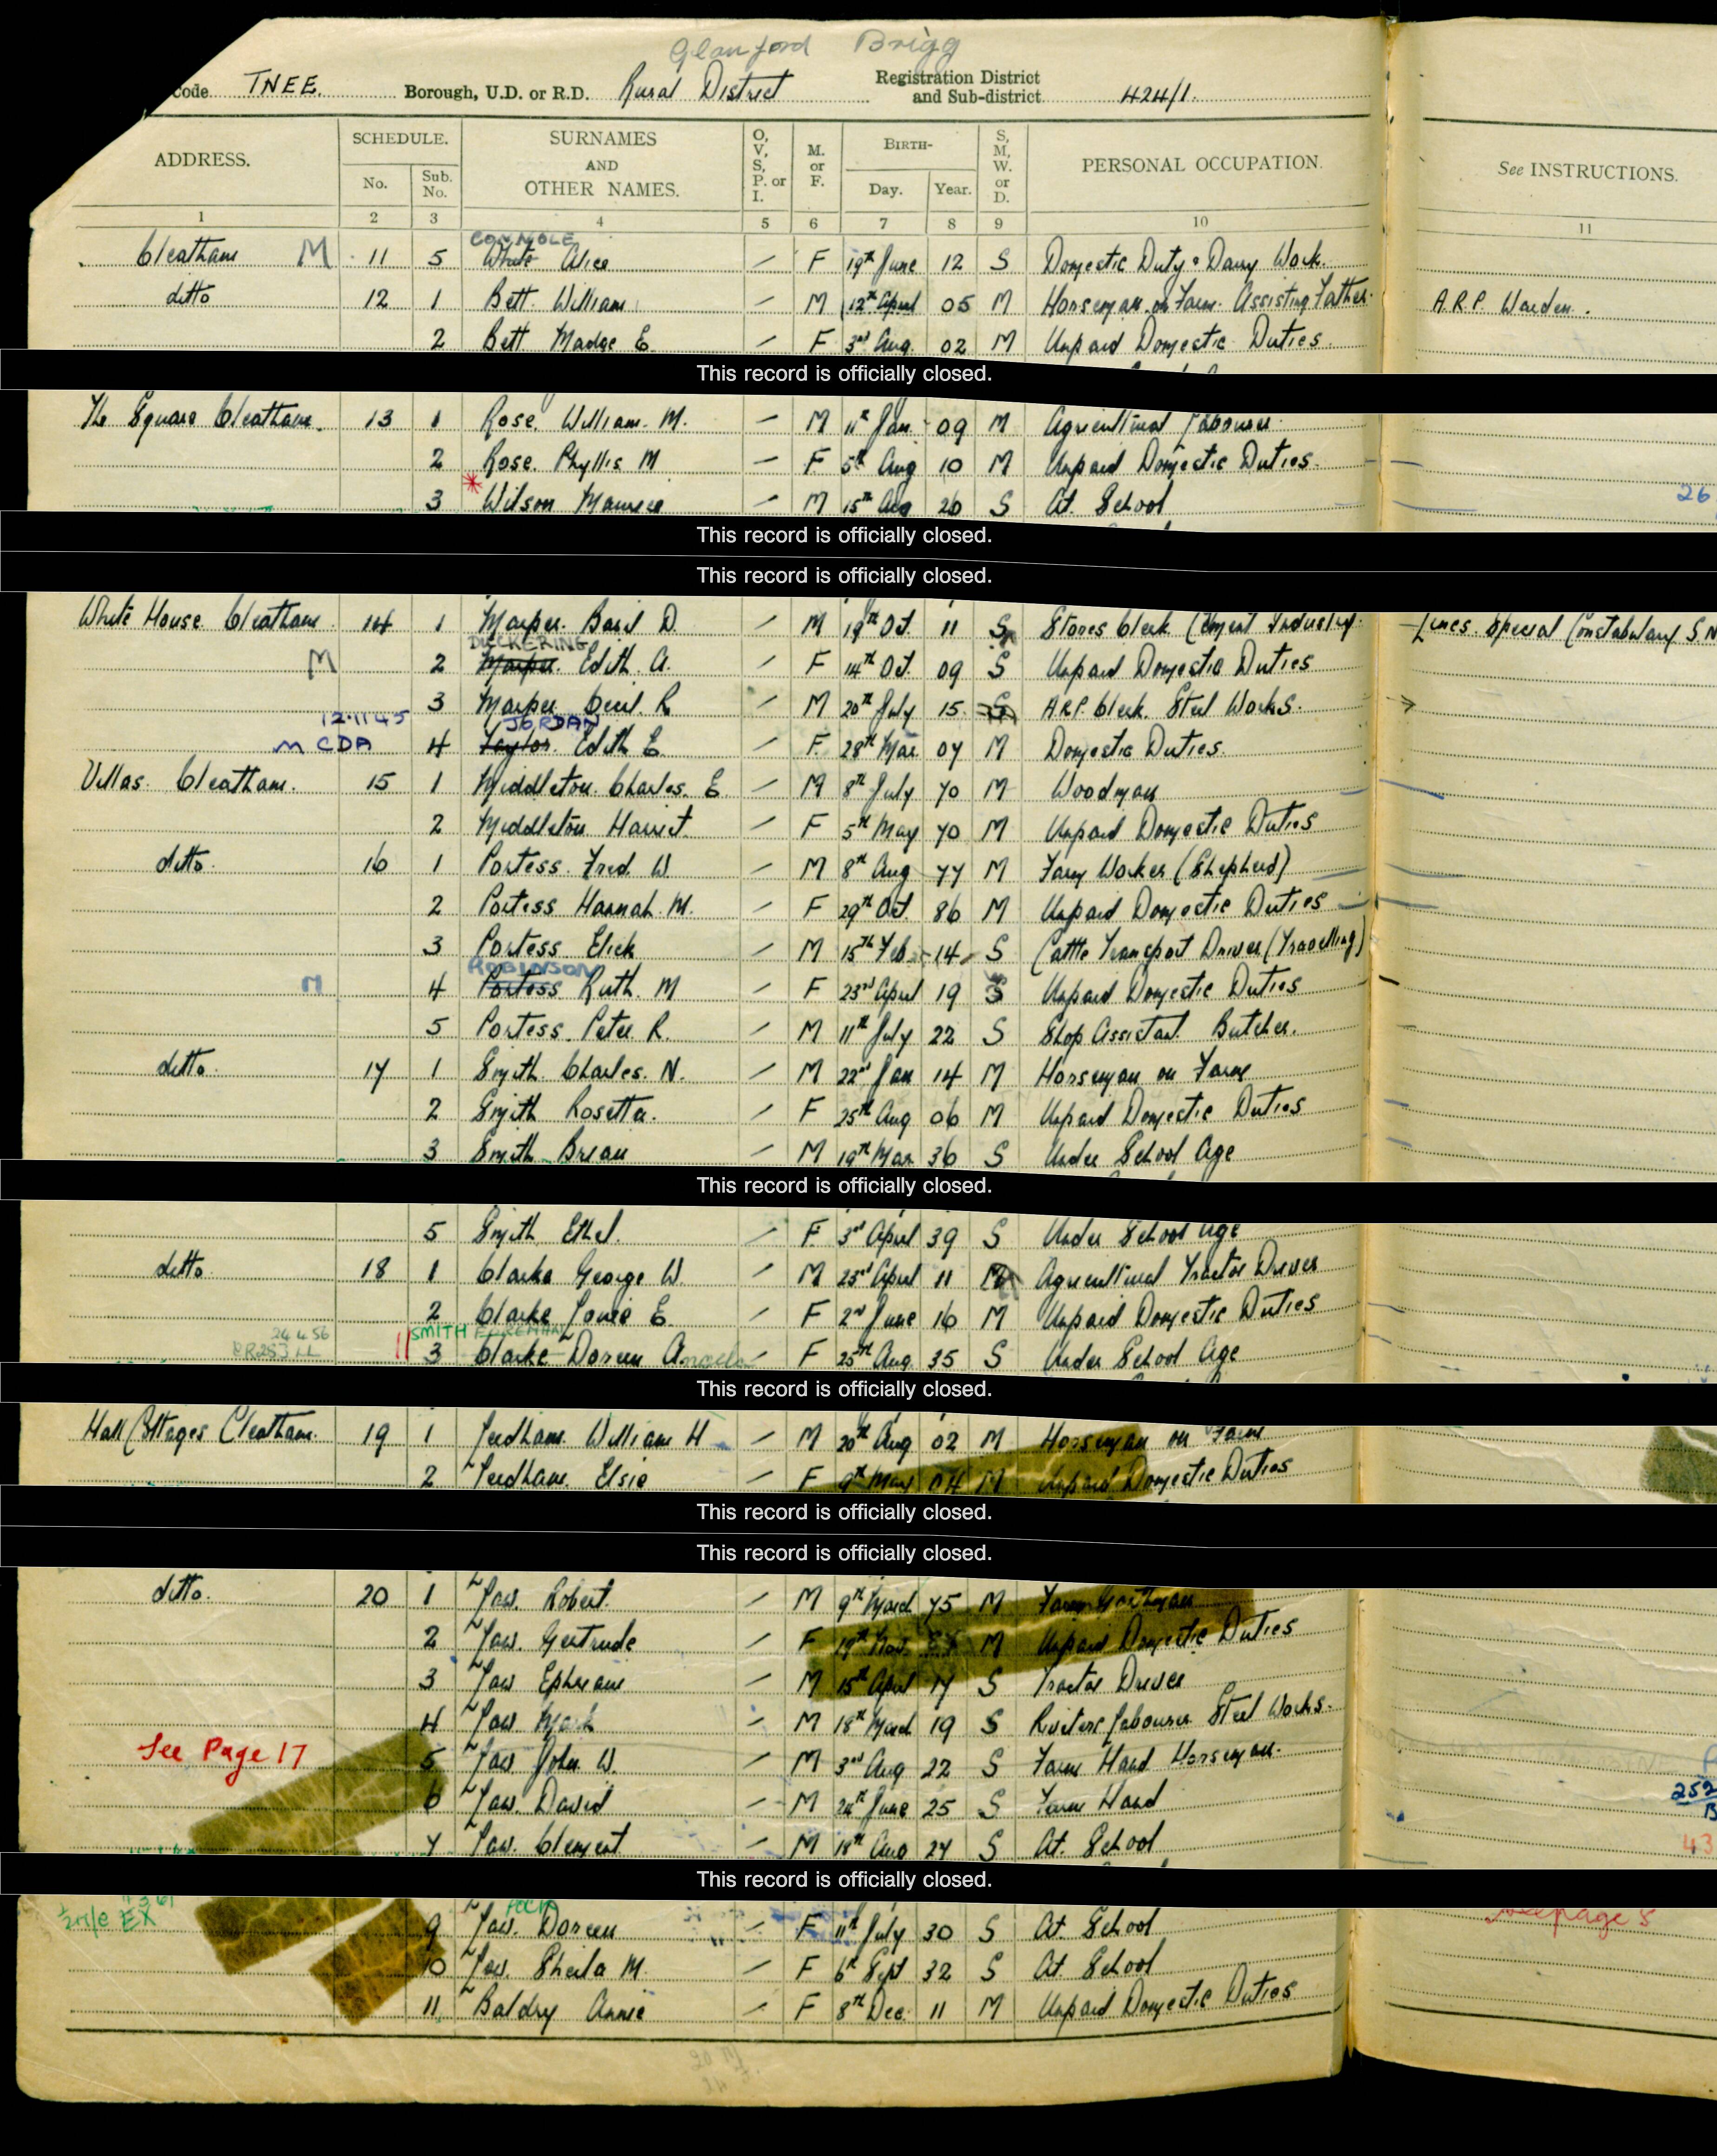 Glanford Brigg
Code TNEE. Borough, U.D. or R.D. Rural District Registration District and Sub-district 424/1.
ADDRESS. SCHEDULE. No. Sub. No. SURNAMES AND OTHER NAMES. O, V, S, P. or I. M. or F. BIRTH- Day. Year. S, M, W. or D. PERSONAL OCCUPATION. See INSTRUCTIONS.
1 2 3 4 5 6 7 8 9 10 11
CONNOLE
Cleatham M 11 5 White Alice — F 19th June 12 S Domestic Duty & Dairy Work.
ditto 12 1 Bett William — M 12th April 05 M Horseman on Farm. Assisting Father. A.R.P. Warden.
2 Bett Madge E. — F 3rd Aug. 02 M Unpaid Domestic Duties.
This record is officially closed.
The Square Cleatham. 13 1 Rose. William. M. — M 11th Jan. 09 M Agricultural Labourer.
2 Rose. Phyllis M — F 5th Aug 10 M Unpaid Domestic Duties.
3 Wilson Maurice — M 15th Aug 26 S At School 26
This record is officially closed.
This record is officially closed.
White House Cleatham 14 1 Marper. Basil D. — M 19th Oct 11 S Stores Clerk (Cement Industry. Lincs. Special Constabulary S.N
DUCKERING
M 2 Marper. Edith A. — F 14th Oct. 09 S Unpaid Domestic Duties
3 Marper Cecil R — M 20th July 15 S A.R.P. Clerk. Steel Works.
12.11.45 JORDAN
M CDA 4 Taylor. Edith E — F. 28th Mar 07 M Domestic Duties.
Villas. Cleatham. 15 1 Middleton. Charles. E — M 8th July 70 M Woodman
2 Middleton Harriet — F 5th May 70 M Unpaid Domestic Duties
ditto. 16 1 Portess. Fred. W. — M 8th Aug 77 M Farm Worker (Shepherd)
2 Portess Hannah. M. — F 29th Oct 86 M Unpaid Domestic Duties
3 Portess Elick — M 15th Feb 14 S Cattle Transport Driver (Travelling)
ROBINSON
M 4 Portess Ruth. M — F 23rd April 19 S Unpaid Domestic Duties
5 Portess. Peter. R. — M 11th July 22 S Shop Assistant. Butcher.
ditto. 17 1 Smith Charles. N. — M 22nd Jan 14 M Horseman on Farm
2 Smith Rosetta. — F 25th Aug 06 M Unpaid Domestic Duties
3 Smith Brian — M 19th Mar 36 S Under School Age
This record is officially closed.
5 Smith Ethel. — F 3rd April 39 S Under School Age
ditto 18 1 Clarke George W — M 23rd April 11 M Agricultural Tractor Driver
2 Clarke Louie E. — F 2nd June 16 M Unpaid Domestic Duties
24.4.56 SMITH
3 Clarke Doreen Angela — F 25th Aug. 35 S Under School Age
This record is officially closed.
Hall Cottages Cleatham. 19 1 Jeedham. William H — M 20th Aug 02 M Horseman on Farm
2 Jeedham. Elsie — F 9th May 04 M Unpaid Domestic Duties
This record is officially closed.
This record is officially closed.
ditto. 20 1 Jaw. Robert. — M 9th March 75 M Farm
2 Jaw. Gertrude — F 19th Nov. M Unpaid Domestic Duties
3 Jaw Ephraim — M 15th April 17 S Tractor Driver
4 Jaw Mark — M 18th March 19 S Riviters Labourer Steel Works.
See Page 17 5 Jaw John W. — M 3rd Aug 22 S Farm Hand Horseman.
6 Jaw. David — M 24th June 25 S Farm Hand 252
7 Jaw. Clement — M 18th Aug 27 S At School 43
This record is officially closed.
EX 9 Jaw. Doreen — F 11th July 30 S At School See page 5
10 Jaw. Sheila M. — F 6th Sept 32 S At School
11 Baldry Annie — F 8th Dec. 11 M Unpaid Domestic Duties